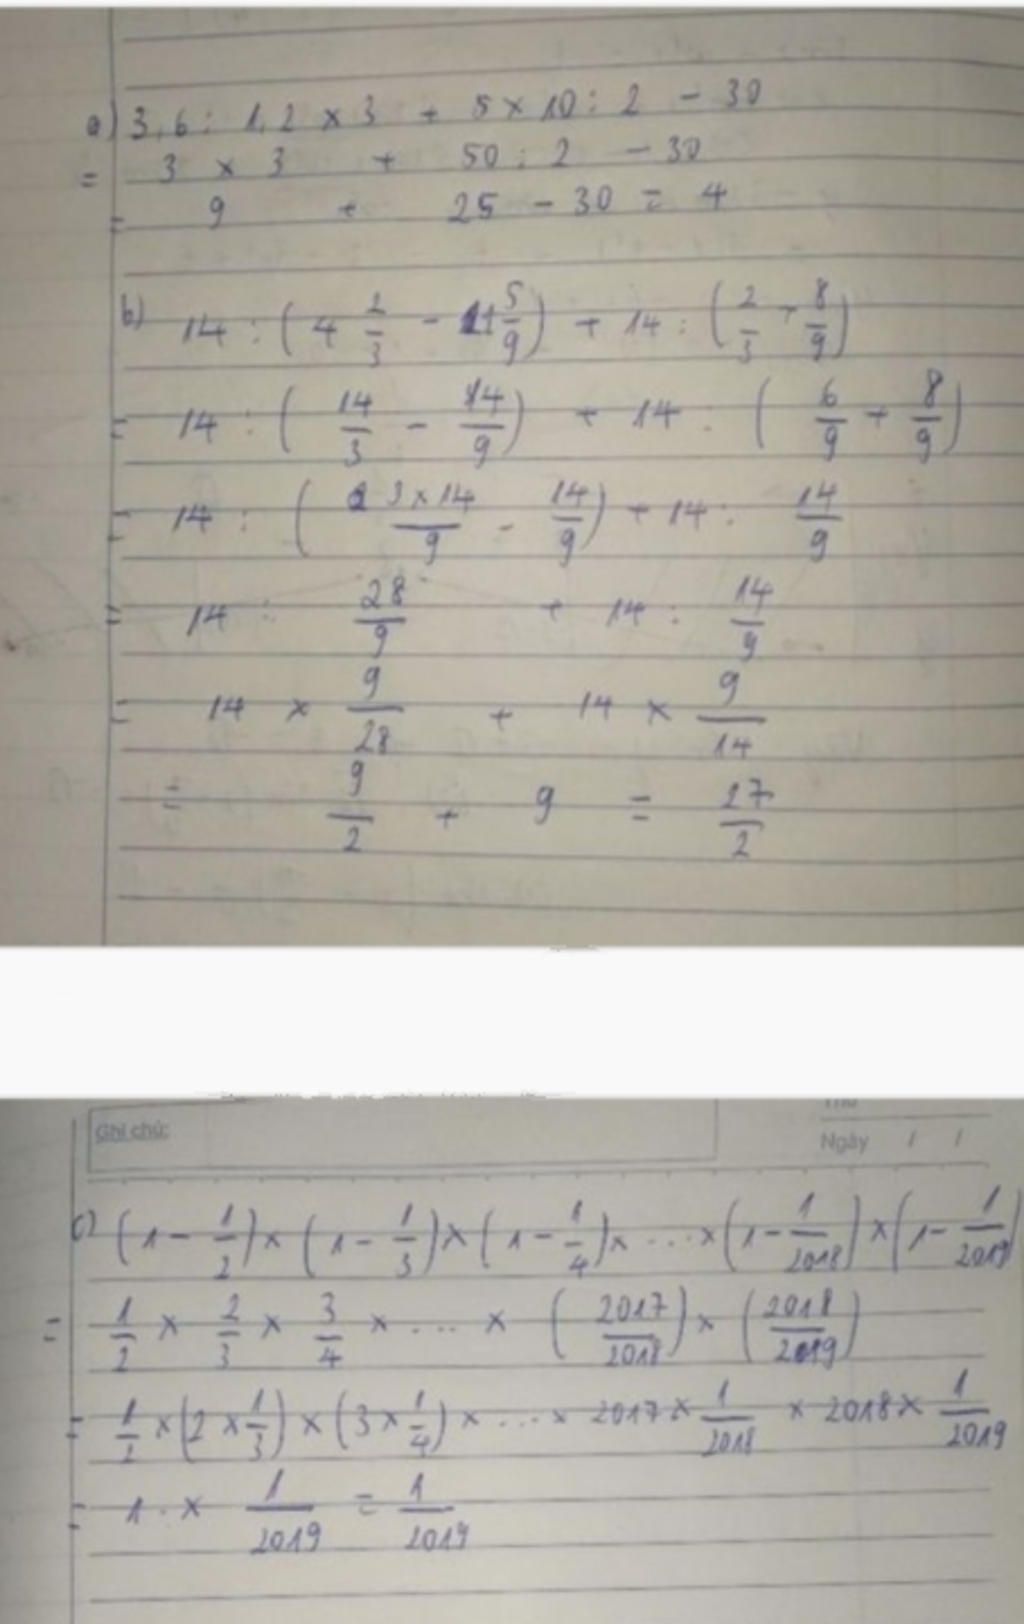 a) 3,6 : 1,2 × 3 + 5 × 10 : 2 - 30
= 3 × 3 + 50 : 2 - 30
= 9 + 25 - 30 = 4
b) 14 : (4 2/3 - 1 5/9) + 14 : (2/3 + 8/9)
= 14 : (14/3 - 14/9) + 14 : (6/9 + 8/9)
= 14 : (3×14/9 - 14/9) + 14 : 14/9
= 14 : 28/9 + 14 : 14/9
= 14 × 9/28 + 14 × 9/14
= 9/2 + 9 = 27/2
Ghi chú:
Thứ
Ngày / /
c) (1 - 1/2) × (1 - 1/3) × (1 - 1/4) × ... × (1 - 1/2018) × (1 - 1/2019)
= 1/2 × 2/3 × 3/4 × ... × (2017/2018) × (2018/2019)
= 1/2 × (2 × 1/3) × (3 × 1/4) × ... × 2017 × 1/2018 × 2018 × 1/2019
= 1 . × 1/2019 = 1/2019